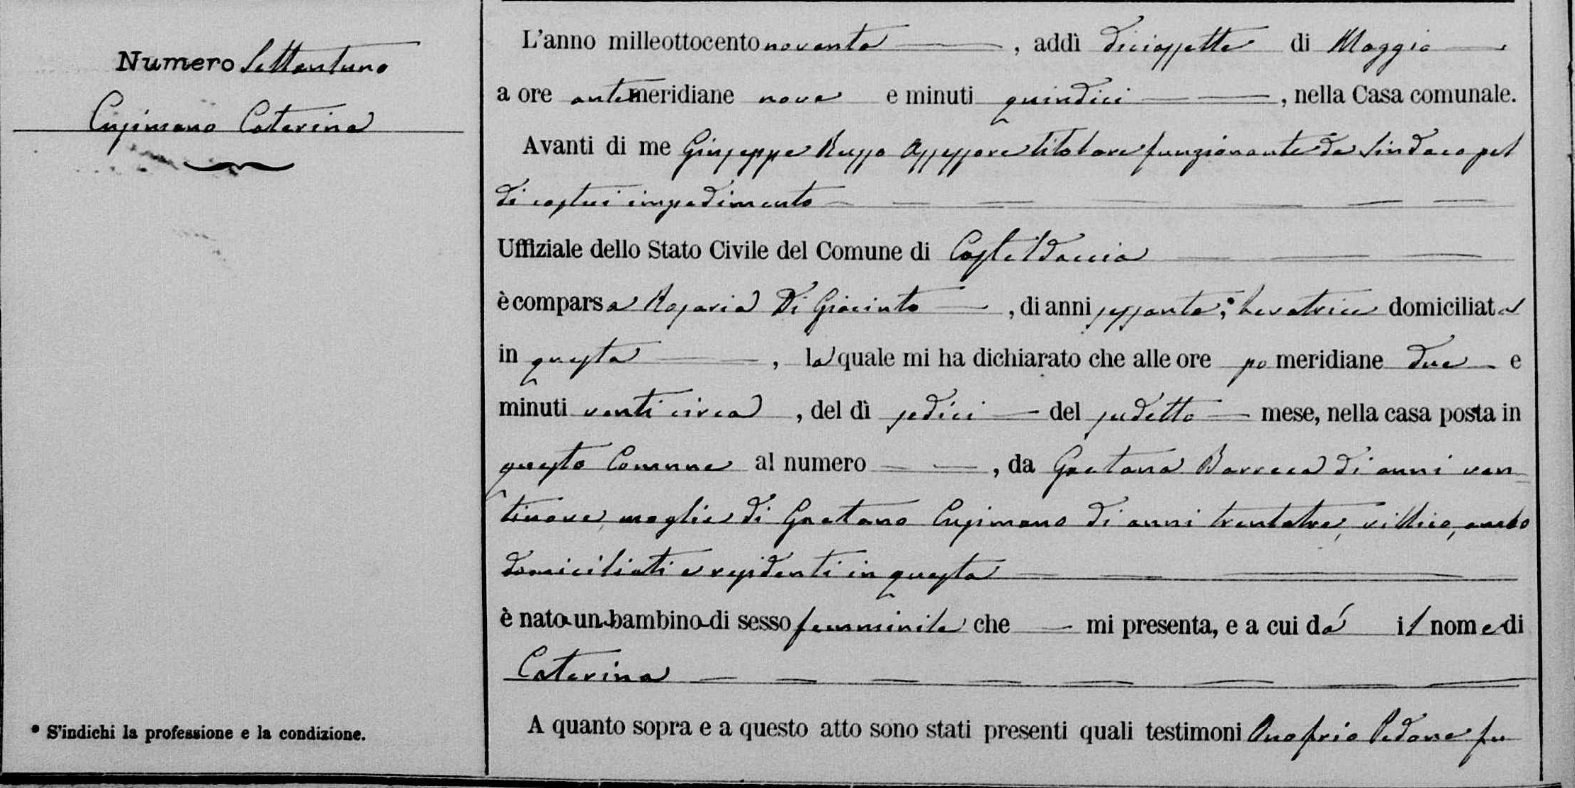 Numero Settantuno
Cusimano Caterina
* S'indichi la professione e la condizione.
L'anno milleottocento novanta, addì diciassette di Maggio
a ore antemeridiane nove e minuti quindici, nella Casa comunale.
Avanti di me Giuseppe Russo Assessore titolare funzionante da Sindaco pel
di costui impedimento
Uffiziale dello Stato Civile del Comune di Casteldaccia
è comparsa Rosaria Di Giacinto, di anni sessanta, * levatrice domiciliata
in questa, la quale mi ha dichiarato che alle ore pomeridiane due e
minuti venti circa, del dì sedici del sudetto mese, nella casa posta in
questo Comune al numero, da Gaetana Barreca di anni ven-
tinove moglie di Gaetano Cusimano di anni trentatre, villico, ambo
domiciliati e residenti in questa
è nato un bambino di sesso femminile che mi presenta, e a cui dà il nome di
Caterina
A quanto sopra e a questo atto sono stati presenti quali testimoni Onofrio Pedone fu